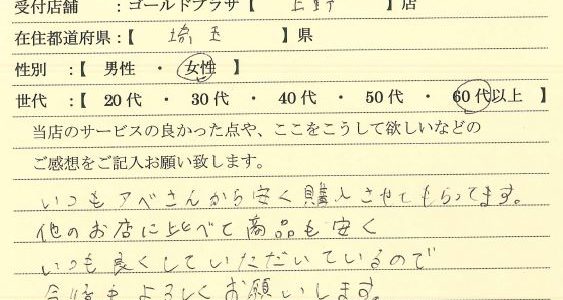 受付店舗 :ゴールドプラザ【 上野 】店
在住都道府県:【 埼玉 】県
性別 :【 男性 ・ 女性 】
世代 :【 20代 ・ 30代 ・ 40代 ・ 50代 ・ 60代以上 】
当店のサービスの良かった点や、ここをこうして欲しいなどの
ご感想をご記入お願い致します。
いつもアベさんから安く購入させてもらってます。
他のお店に比べて商品も安く
いつも良くしていただいているので
今後もよろしくお願いします。